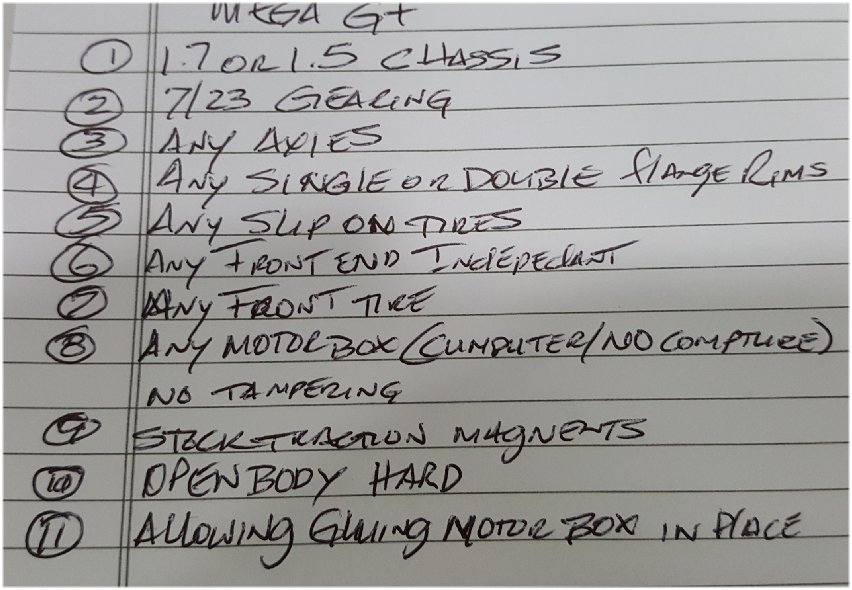 MEGA G+
① 1.7 OR 1.5 CHASSIS
② 7/23 GEARING
③ ANY AXIES
④ ANY SINGLE OR DOUBLE flANGE RIMS
⑤ ANY SLIP ON TIRES
⑥ ANY FRONT END INDEPEDANT
⑦ ANY FRONT TIRE
⑧ ANY MOTOR BOX (CUMPUTER/NO COMPTURE)
NO TAMPERING
⑨ STOCK TRACTION MAGNENTS
⑩ OPEN BODY HARD
⑪ AllOWING GluING MOTOR BOX IN PlACE